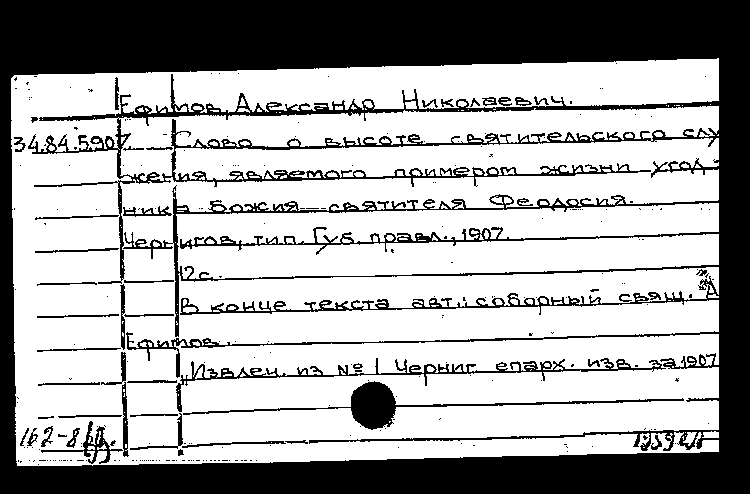 Ефимов, Александр Николаевич.
34.84.5.907. Слово о высоте святительского слу
жения, являемого примером жизни угод-
ника Божия святителя Феодосия.
Чернигов, тип. Губ. правл., 1907.
12с.
В конце текста авт.: соборный свящ. А
Ефимов.
„Извлеч. из № 1 Черниг. епарх. изв. за 1907
162-8